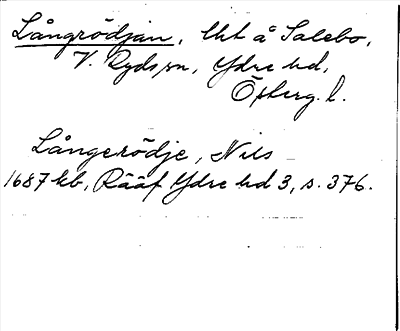 Långrödjan, lht å Salebo,
V. Ryds sn, Ydre hd,
Östberg. l.
Långerödje, Nils
1687 kb, Rääf Ydre hd 3, s. 376.